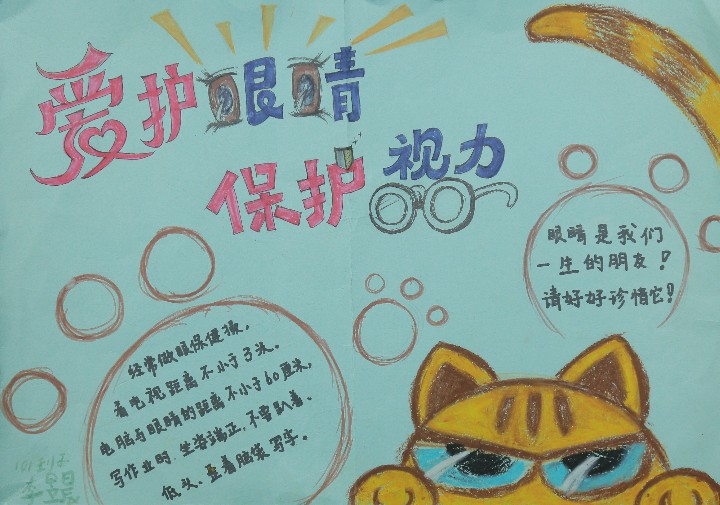 爱护眼睛
保护视力
眼睛是我们
一生的朋友!
请好好诊惜它!
经常做眼保健操,
看电视距离不小于3米。
电脑与眼睛的距离不小于60厘米,
写作业时,坐姿端正,不要趴着、
低头、歪着脑袋写字。